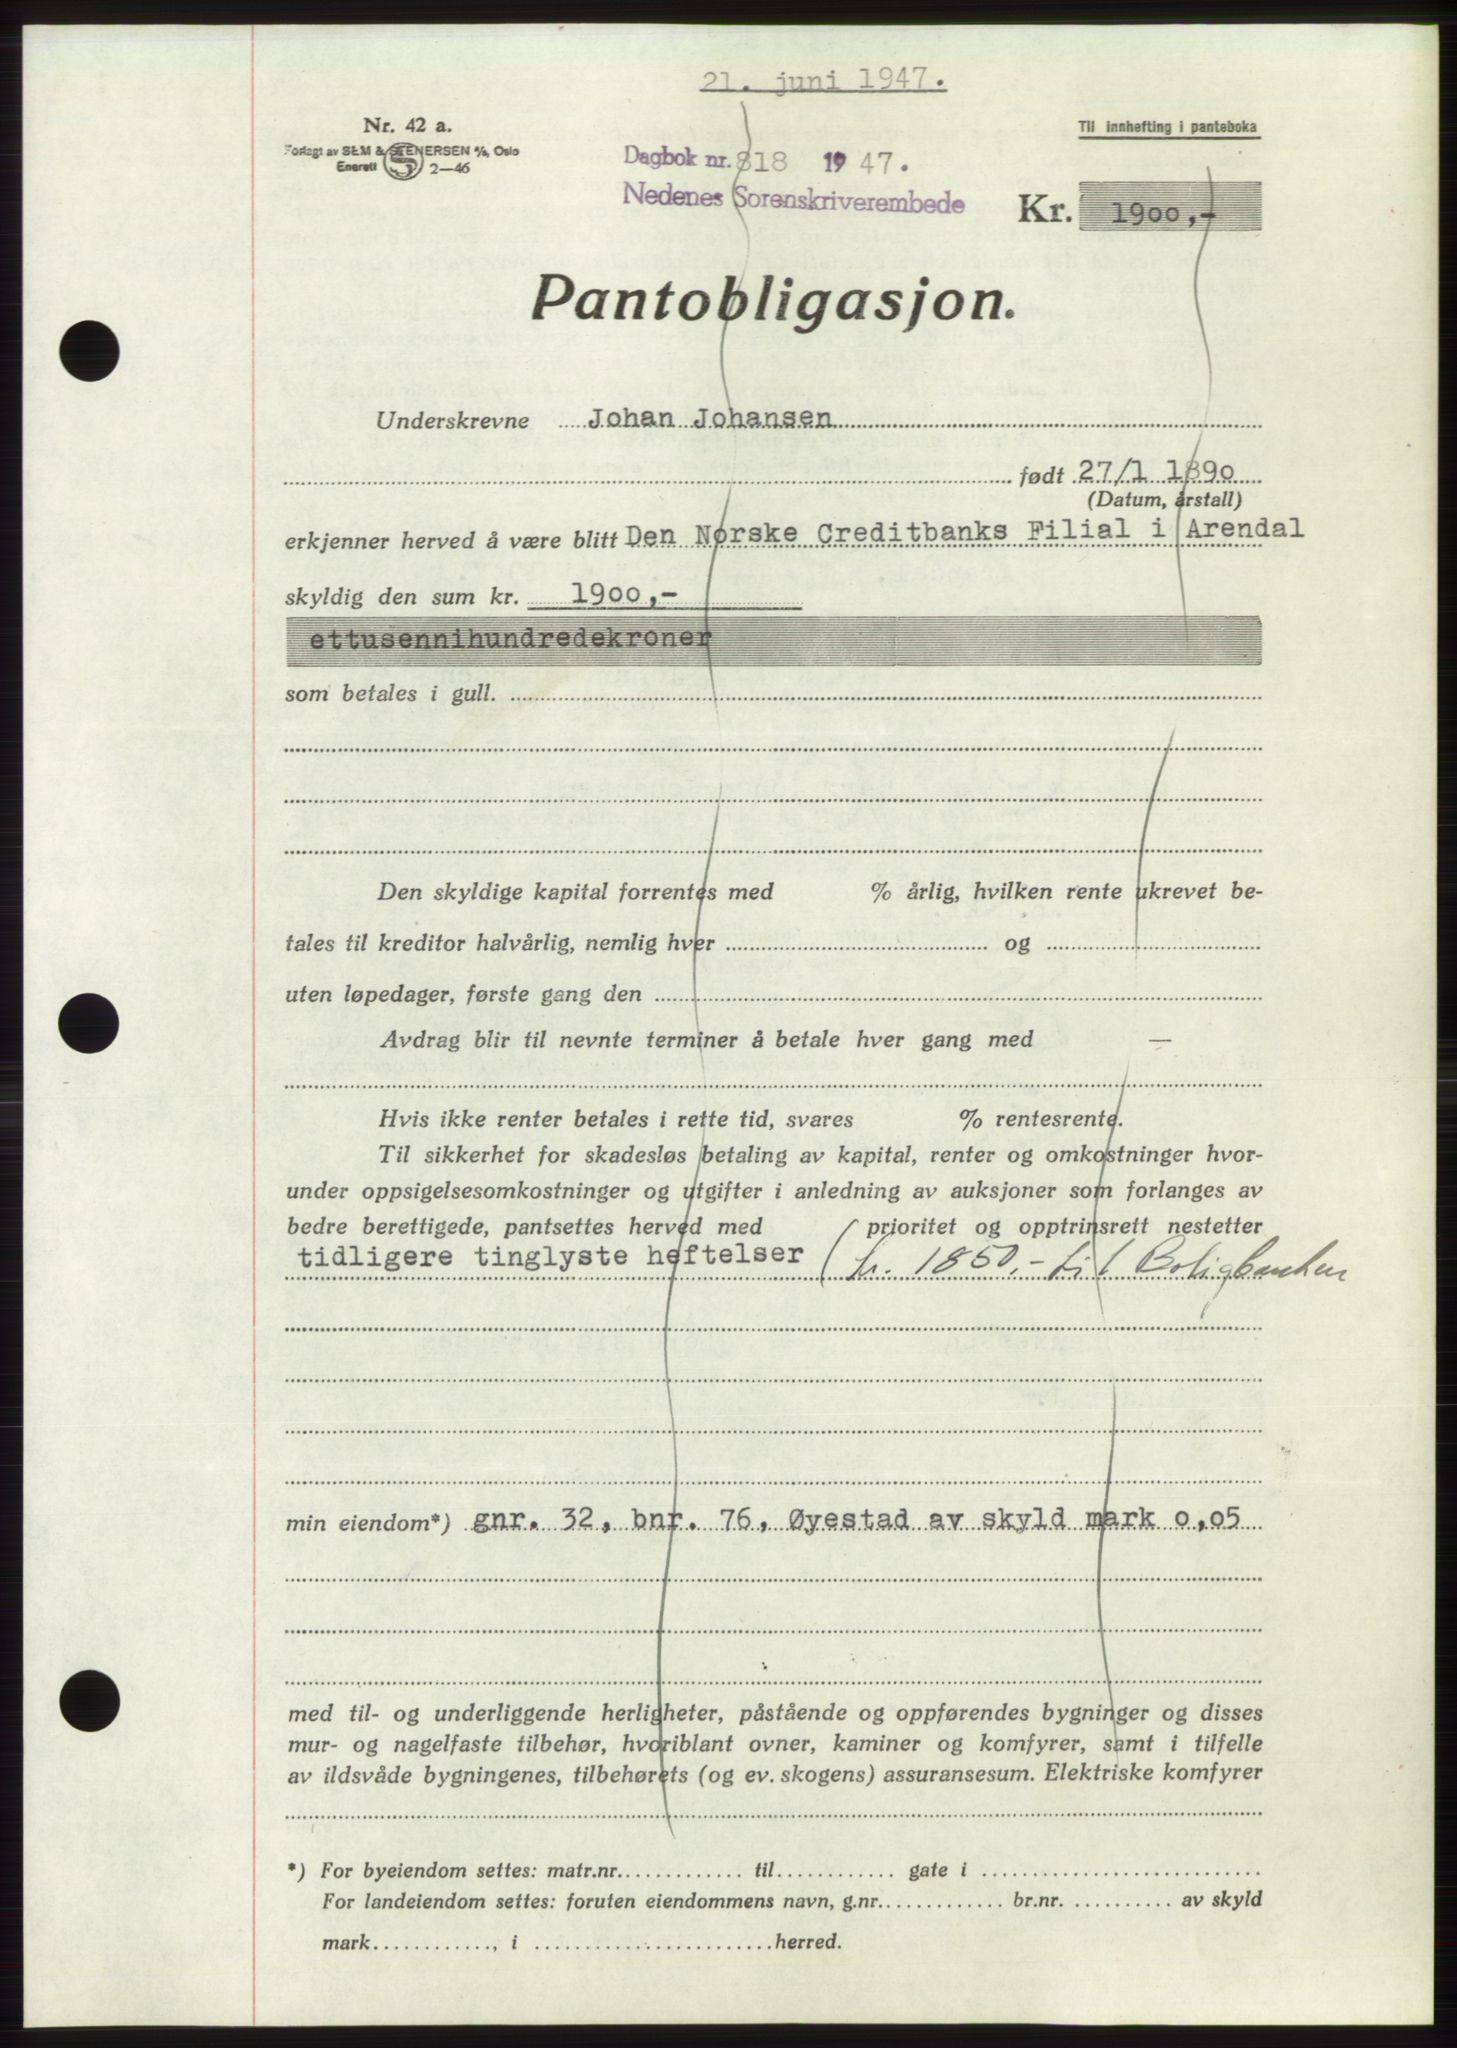 21. juni 1947.
Nr. 42 a.
Forlagt av SEM & STENERSEN A/S, Oslo
Enerett 2—46
Til innhefting i panteboka
Dagbok nr. 818 1947.
Nedenes Sorenskriverembede
Kr. 1900,-
Pantobligasjon.
Underskrevne Johan Johansen
født 27/1 1890
(Datum, årstall)
erkjenner herved å være blitt Den Norske Creditbanks Filial i Arendal
skyldig den sum kr. 1900,-
ettusennihundredekroner
som betales i gull.
Den skyldige kapital forrentes med % årlig, hvilken rente ukrevet be-
tales til kreditor halvårlig, nemlig hver og
uten løpedager, første gang den
Avdrag blir til nevnte terminer å betale hver gang med —
Hvis ikke renter betales i rette tid, svares % rentesrente.
Til sikkerhet for skadesløs betaling av kapital, renter og omkostninger hvor-
under oppsigelsesomkostninger og utgifter i anledning av auksjoner som forlanges av
bedre berettigede, pantsettes herved med prioritet og opptrinsrett nestetter
tidligere tinglyste heftelser (kr. 1850,- til Boligbanken
min eiendom*) gnr. 32, bnr. 76, Øyestad av skyld mark 0,05
med til- og underliggende herligheter, påstående og oppførendes bygninger og disses
mur- og nagelfaste tilbehør, hvoriblant ovner, kaminer og komfyrer, samt i tilfelle
av ildsvåde bygningenes, tilbehørets (og ev. skogens) assuransesum. Elektriske komfyrer
*) For byeiendom settes: matr.nr. til gate i
For landeiendom settes: foruten eiendommens navn, g.nr. br.nr. av skyld
mark , i herred.